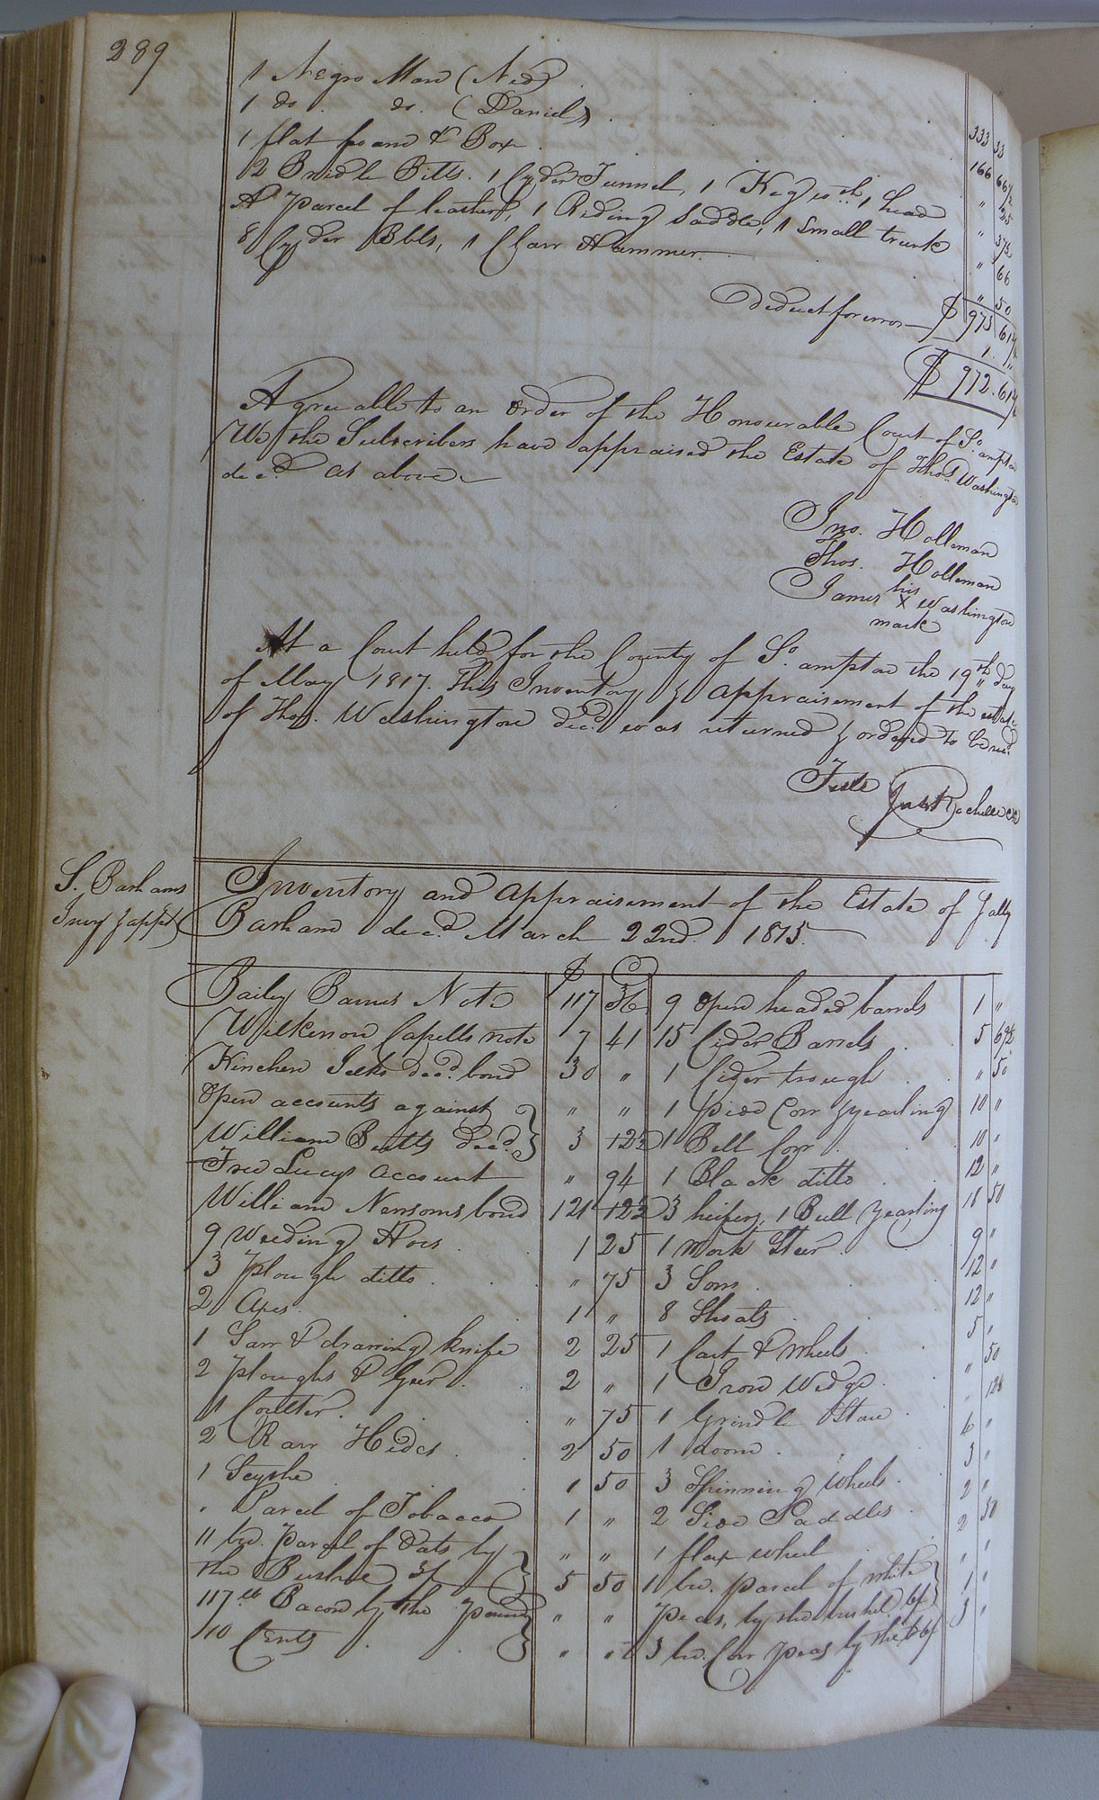 289
1 Negro Man (Ned) 333 33
1 do. do. (Daniel) 166 66½
1 flat &amp; Box " 25
2 Bridle Bitts. 1 Cyder Funnel, 1 Keg with 1 head " 37½
A Parcel of leather, 1 Riding Saddle, 1 Small trunk " 66
8 Cyder Bbls, 1 Claw Hammer " 50
$ 973 61½
deduct for error 1 "
$ 972.61½
Agreeable to an Order of the Honourable Court of So.ampton
We the Subscribers have appraised the Estate of Thos. Washington
decd. as above
Jno. Holleman
Thos. Holleman
his
James X Washington
mark
At a Court held for the County of So.ampton the 19th day
of May 1817. This Inventory & appraisement of the estate
of Thos. Washington decd. was returned & ordered to be recd.
Teste
Jas Rochelle CC
S. Barhams
Invy & appt
Inventory and appraisement of the Estate of
Barham decd. March 22nd. 1815.
$ C
Baily Barnes Note 117 36 9 Open headed barrels 1 "
Wilkerson Capells note 7 41 15 Cider Barrels 5 62½
Kinchen decd. bond 30 " 1 Cider trough " 50
Open accounts against " " 1 pied Cow yearling 10 "
William Butts decd. 3 12½ 1 Bell Cow 10 "
Fred Lucys account " 94 1 Black ditto 12 "
William Newsoms bond 121 12½ 3 heifers, 1 Bull yearling 18 50
9 Weeding Hoes 1 25 1 work Steer 9 "
3 Plough ditto " 75 3 Sows 12 "
2 Axes 1 " 8 Shoats 12 "
1 Saw & drawing knife 2 25 1 Cart & Wheels 5 "
2 ploughs & Geer 2 " 1 Iron Wedge " 50
1 Coulter " 75 1 Grindle Stone
2 Raw Hides 2 50 1 Loom 6 "
1 Scythe 1 50 3 Spinning Wheels 3 "
" Parcel of Tobacco 1 " 2 Side Saddles 2 "
11 bu. Parcel of Oats by " " 1 flax wheel 2 50
the Bushel 3/ 5 50 1 bu. parcel of white " "
117 lb Bacon by the pound " " Peas, by the bushel 6/ 1 "
10 Cents " " 3 bu. Cow Peas by the b 6/ 3 "